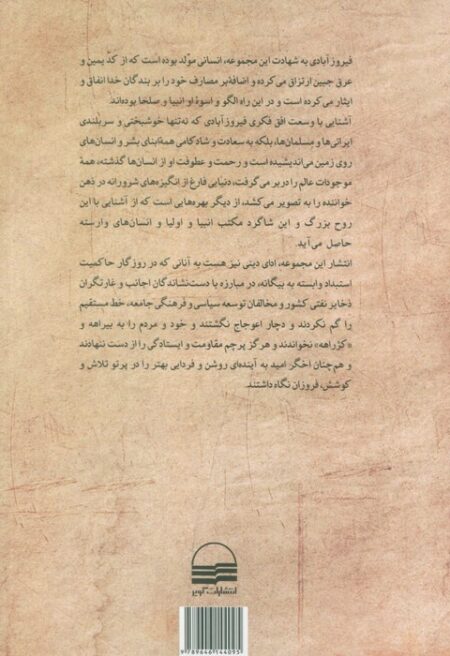 فیروزآبادی به شهادت این مجموعه، انسانی مولّد بوده است که از کدّ یمین و
عرق جبین ارتزاق می‌کرده و اضافهٔ بر مصارف خود را بر بندگان خدا انفاق و
ایثار می‌کرده است و در این راه الگو و اسوهٔ او انبیا و صلحا بوده‌اند.
آشنایی با وسعت افق فکری فیروزآبادی که نه‌تنها خوشبختی و سربلندی
ایرانی‌ها و مسلمان‌ها، بلکه به سعادت و شادکامی همهٔ ابنای بشر و انسان‌های
روی زمین می‌اندیشیده است و رحمت و عطوفت او از انسان‌ها گذشته، همهٔ
موجودات عالم را در بر می‌گرفت، دنیایی فارغ از انگیزه‌های شرورانه در ذهن
خواننده را به تصویر می‌کشد، از دیگر بهره‌هایی است که از آشنایی با این
روح بزرگ و این شاگرد مکتب انبیا و اولیا و انسان‌های وارسته
حاصل می‌آید.
انتشار این مجموعه، ادای دینی نیز هست به آنانی که در روزگار حاکمیت
استبداد وابسته به بیگانه، در مبارزه با دست‌نشاندگان اجانب و غارتگران
ذخایر نفتی کشور و مخالفان توسعه سیاسی و فرهنگی جامعه، خط مستقیم
را گم نکردند و دچار اعوجاج نگشتند و خود و مردم را به بیراهه و
«کژراهه» نخواندند و هرگز پرچم مقاومت و ایستادگی را از دست ننهادند
و هم‌چنان اخگر امید به آینده‌ای روشن و فردایی بهتر را در پرتو تلاش و
کوشش، فروزان نگاه داشتند.
انتشارات کویر
9789646144095